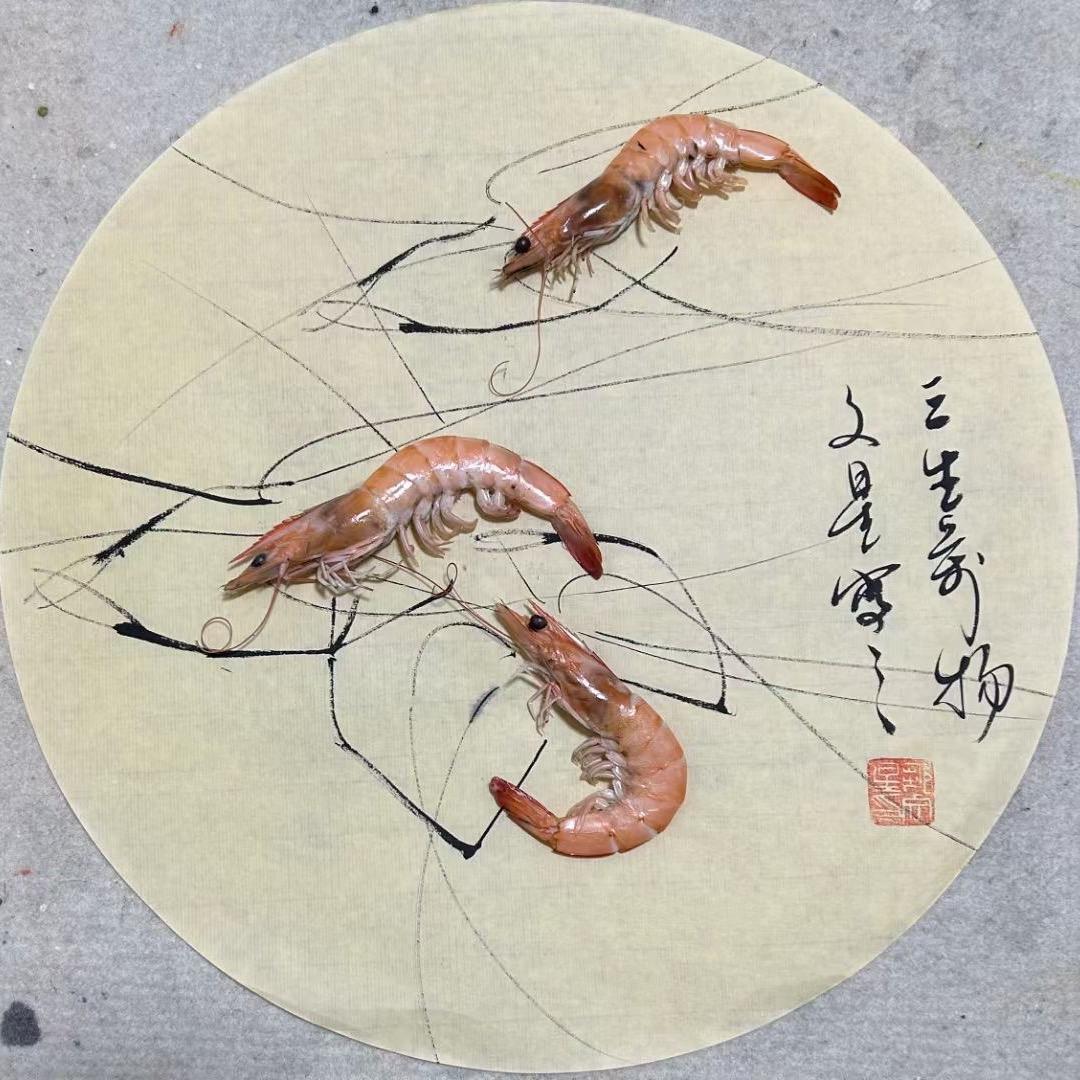 三生万物
文星写之